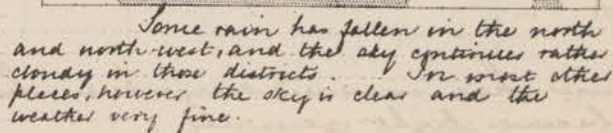 Some rain has fallen in the north
and north-west, and the sky continues rather
cloudy in those districts. In most other
places, however the sky is clear and the
weather very fine.